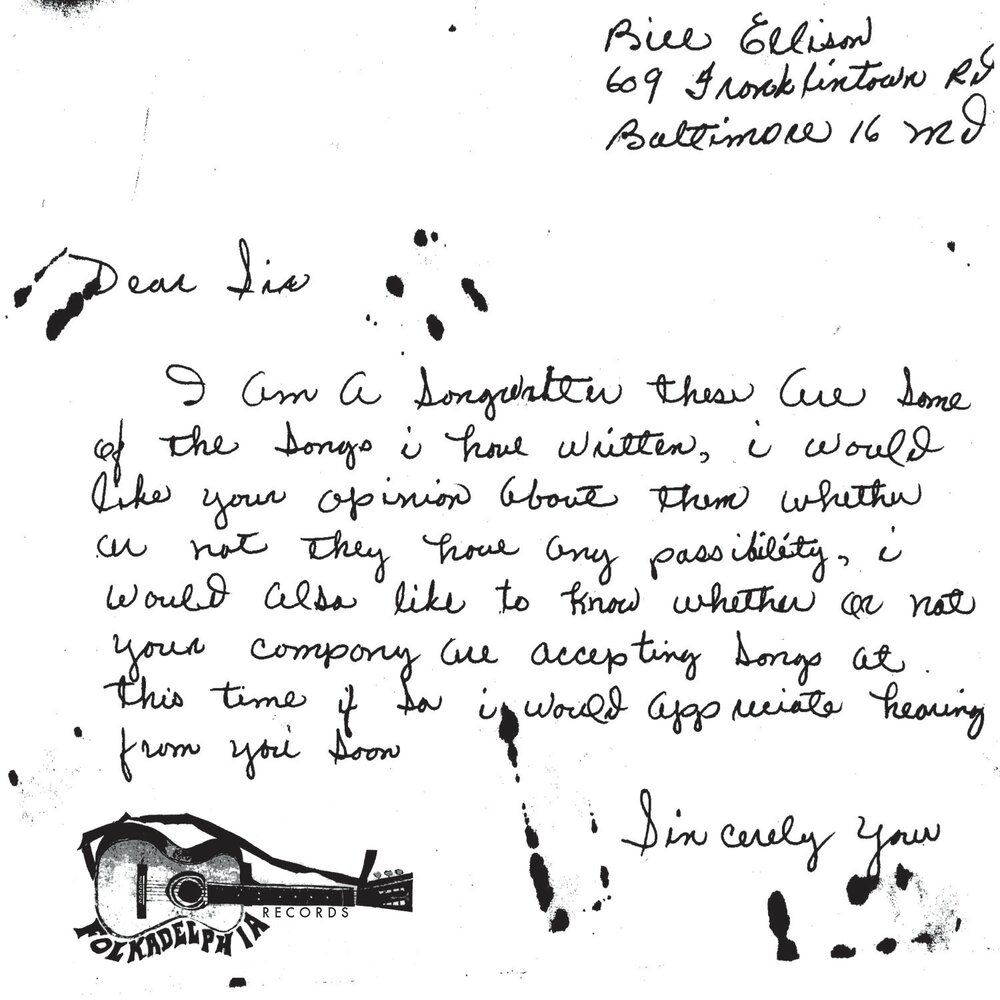 Bill Ellison
609 Franklintown Rd
Baltimore 16 Md
Dear Sir
I am a Songwritter these are some
of the songs i have written, i would
like your opinion about them whether
or not they have any possibility, i
would also like to know whether or not
your company are accepting songs at
this time if so i would appreciate hearing
from you soon
Sincerely your
RECORDS
FOLKADELPHIA